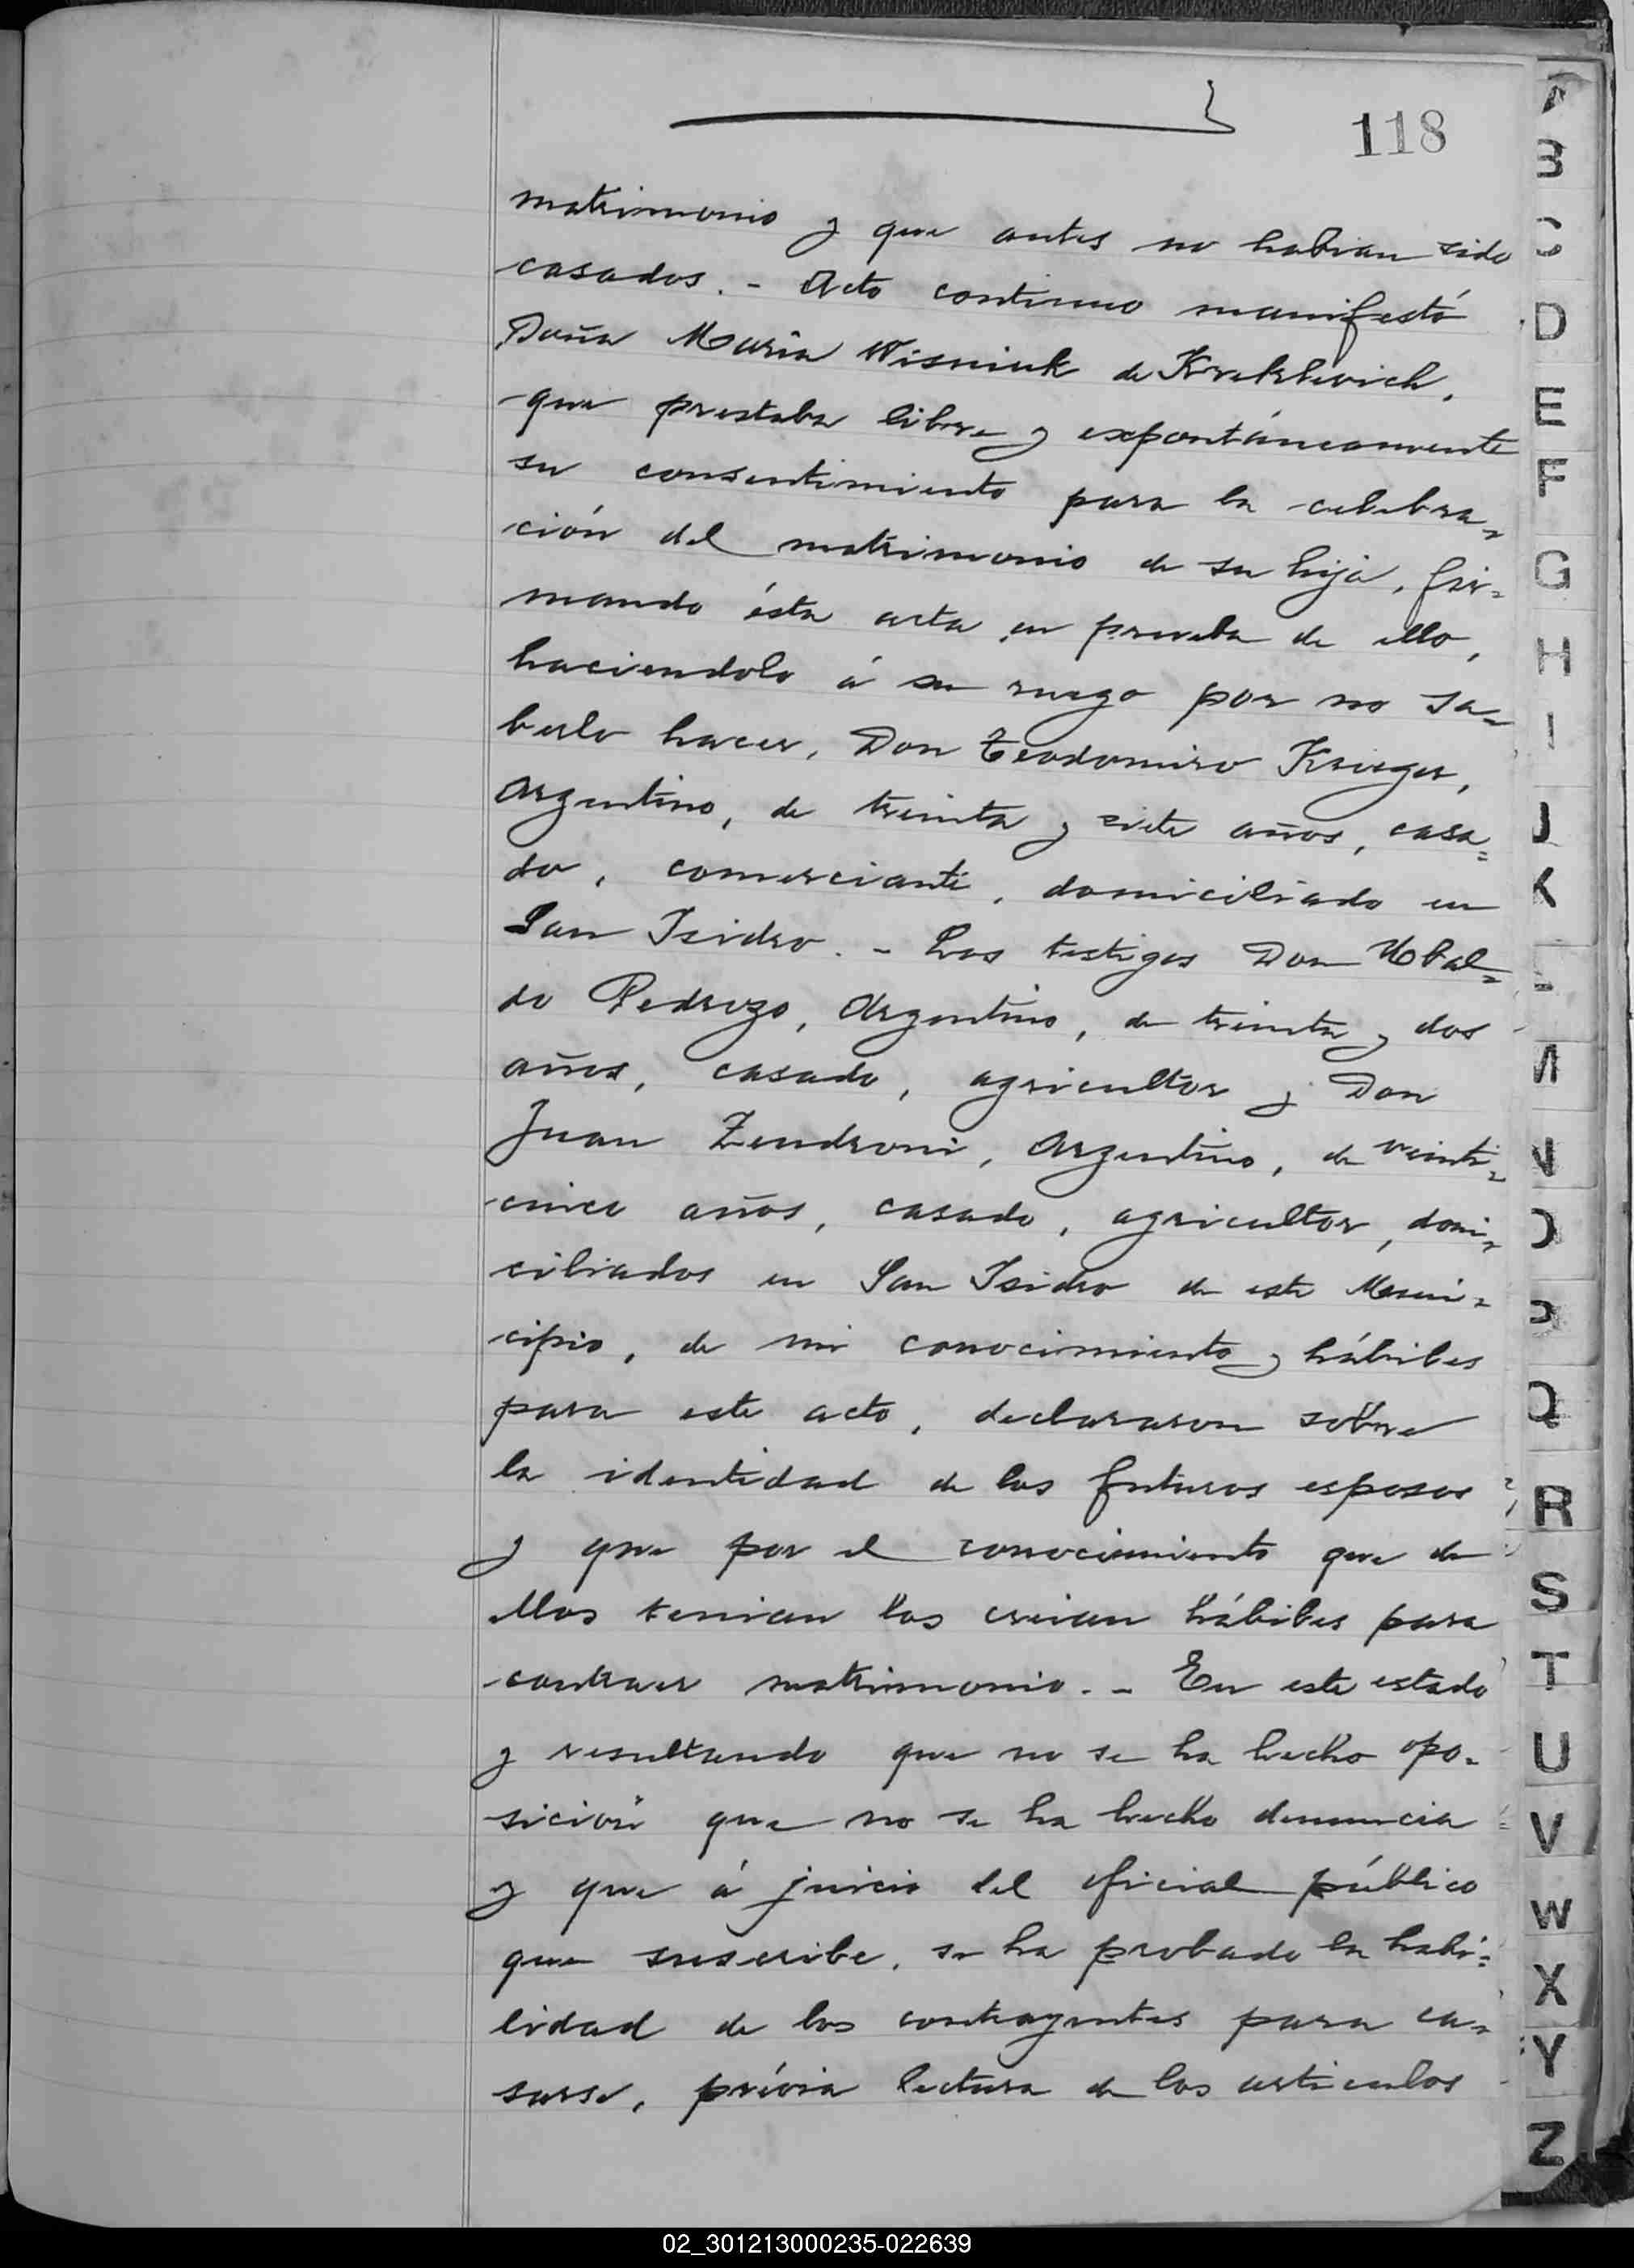 118
matrimonio y que antes no habian sido
casados. - Acto continuo manifestó
Doña María Wisniuk de Kreklevich,
que prestaba libre y expontáneamente
su consentimiento para la celebra=
ción del matrimonio de su hija, fir=
mando ésta acta en prueba de ello,
haciendolo á su ruego por no sa=
berlo hacer, Don Teodomiro Krieger,
Argentino, de treinta y siete años, casa=
do, comerciante, domiciliado en
San Isidro. - Los testigos Don Ubal=
do Pedrozo, Argentino, de treinta y dos
años, casado, agricultor y Don
Juan Zendroni, Argentino, de veinti=
cinco años, casado, agricultor, domi=
ciliados en San Isidro de este Muni=
cipio, de mi conocimiento y hábiles
para este acto, declararon sobre
la identidad de los futuros esposos
y que por el conocimiento que de
ellos tenian los creian hábiles para
contraer matrimonio. - En este estado
y resultando que no se ha hecho opo=
sición que no se ha hecho denuncia
y que á juicio del oficial público
que suscribe, se ha probado la habi=
lidad de los contrayentes para ca=
sarse, prévia lectura de los articulos
A
B
C
D
E
F
G
H
I
J
K
L
M
N
O
P
Q
R
S
T
U
V
W
X
Y
Z
02_301213000235-022639